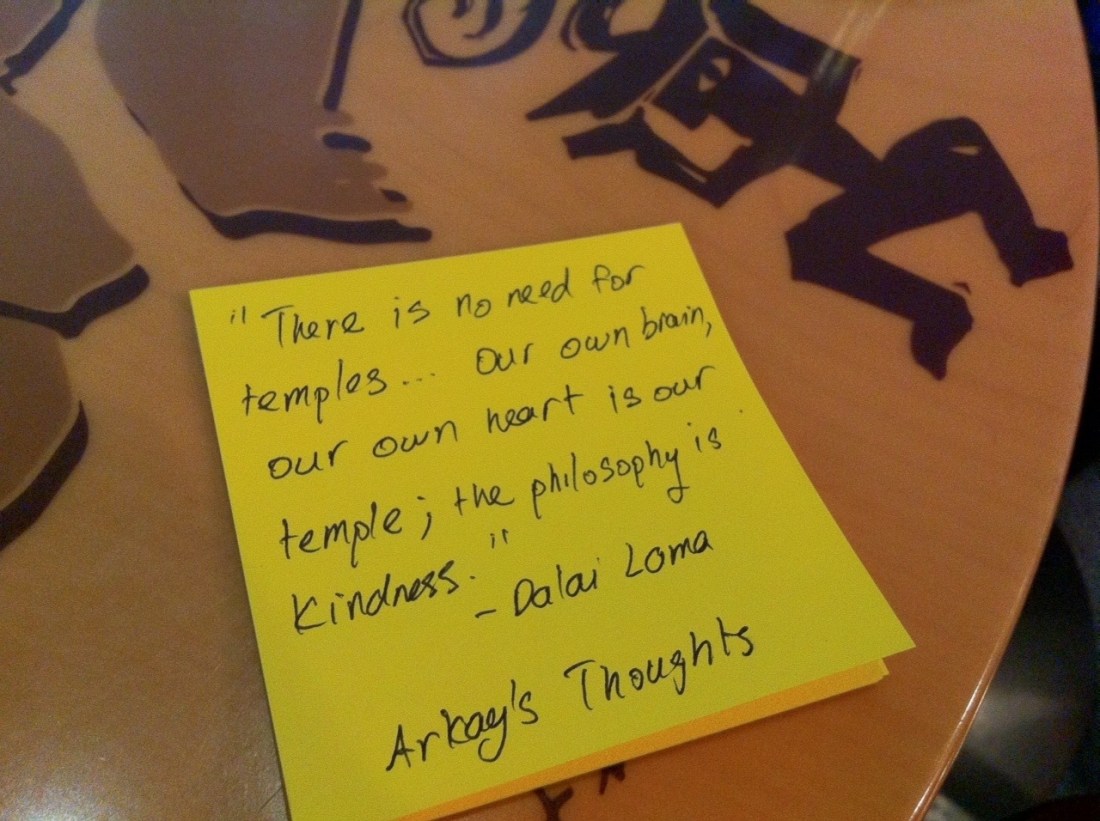 "There is no need for
temples... Our own brain,
our own heart is our
temple; the philosophy is
kindness."
- Dalai Loma
Arkay's Thoughts